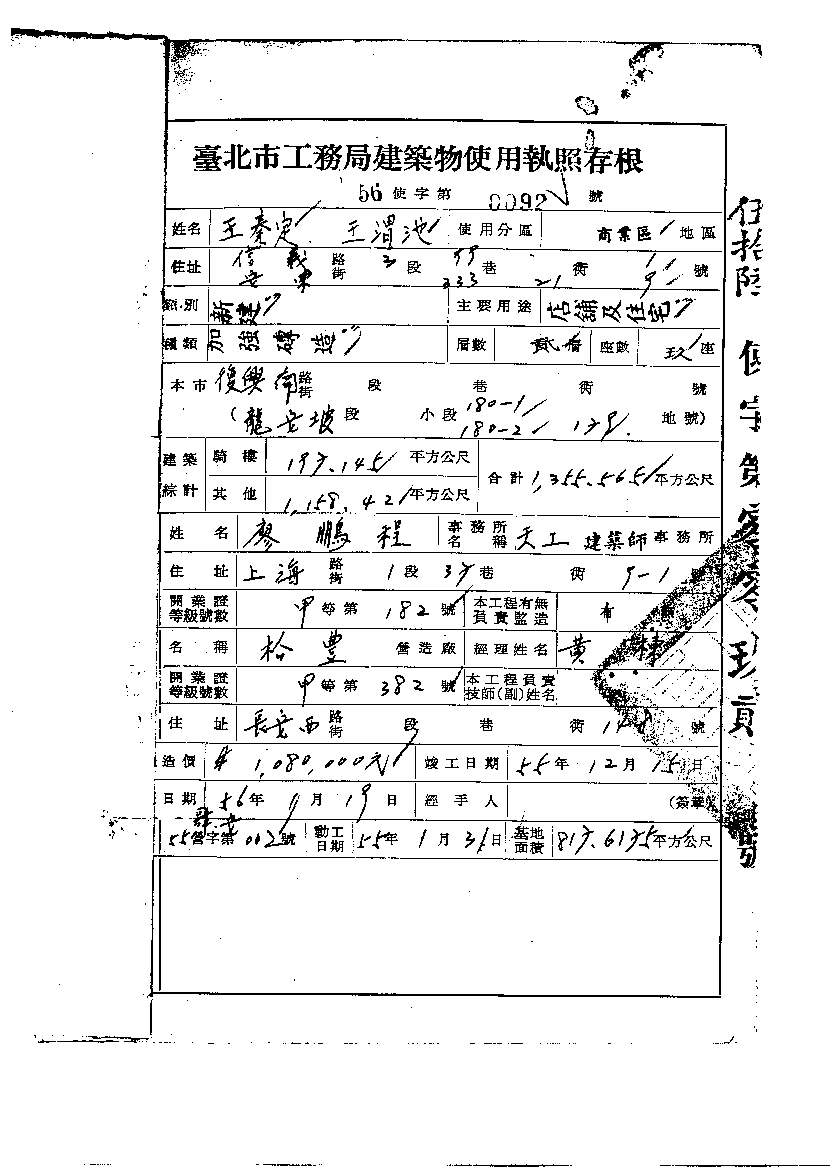 臺北市工務局建築物使用執照存根
56 使字第 0092 號
姓名 王秦定 王渭池 使用分區 商業區 地區
住址 信義 路街 3 段 巷 衖 號
安東 333 21 9
類別 新建 主要用途 店舖及住宅
種類 加強磚造 層數 貳 座數 玖 座
本市 復興南 路街 段 巷 衖 號
(龍安坡段 小段 180-1 180-2 地號)
建築 騎樓 平方公尺 合計 1,355.565 平方公尺
綜計 其他 1,158.42 平方公尺
姓名 廖鵬程 事務所名稱 天工 建築師事務所
住址 上海 路街 1 段 巷 衖 9-1 號
開業證等級號數 甲等第 182 號 本工程有無負責監造 有
名稱 營造廠 經理姓名 黃
開業證等級號數 甲等第 382 號 本工程負責技師(副)姓名
住址 長安西 路街 段 巷 衖 號
造價 1,080,000元 竣工日期 55年 12月 15日
日期 56年 月 19日 經手人 (簽章)
55營字第 002 號 動工日期 55年 1月 31日 基地面積 平方公尺
伍拾陸 使字第零零玖貳號